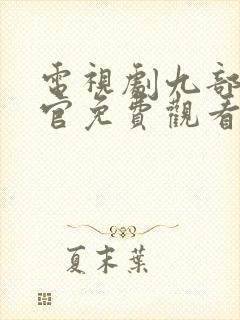 電視劇九部
官免費觀看
夏末葉